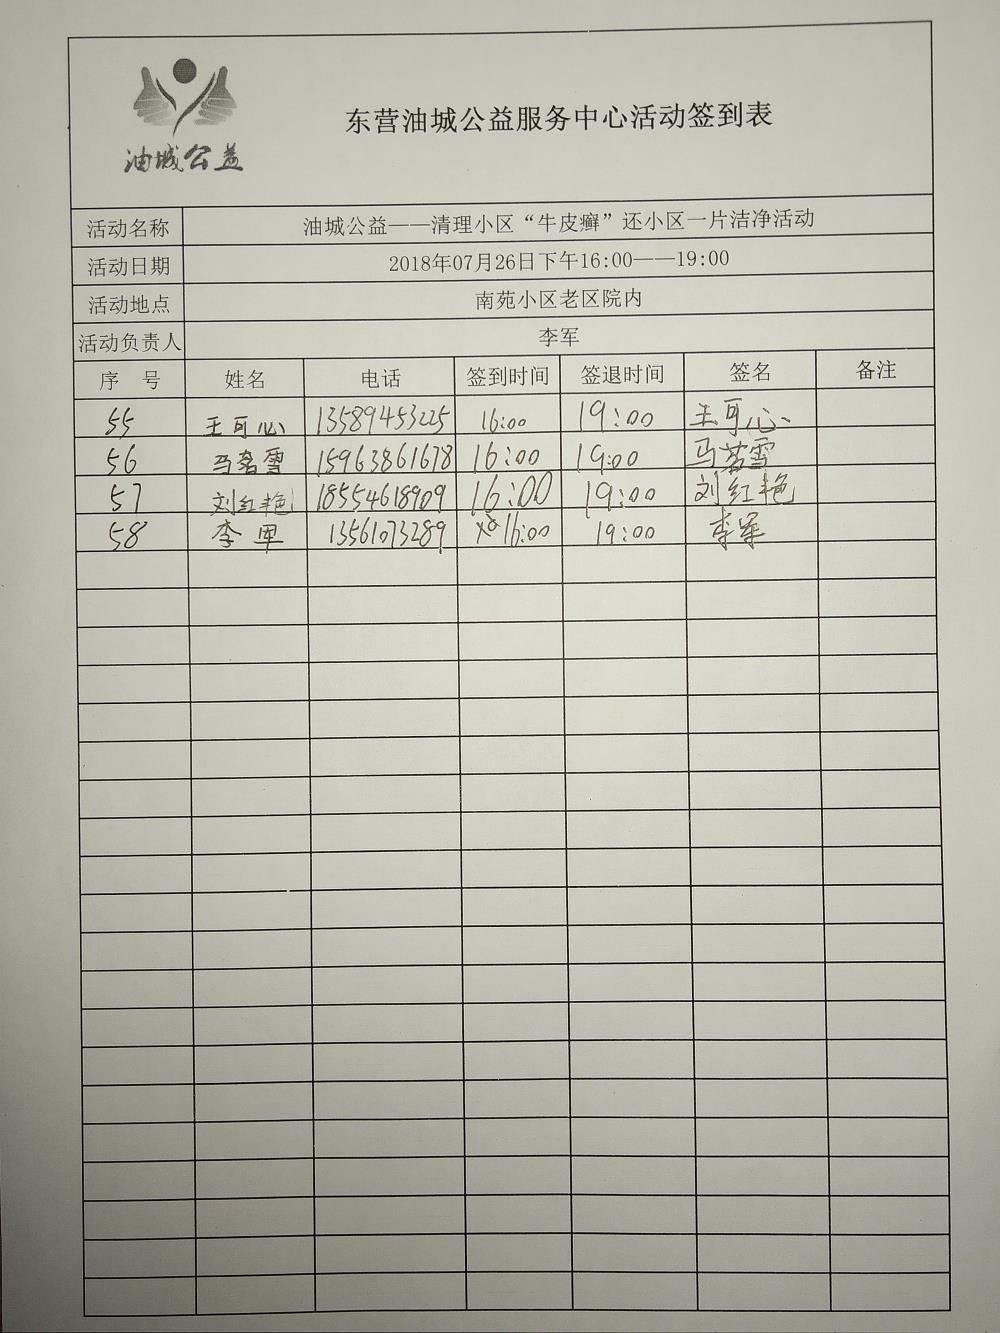 油城公益
东营油城公益服务中心活动签到表
活动名称 油城公益——清理小区“牛皮癣”还小区一片洁净活动
活动日期 2018年07月26日下午16:00——19:00
活动地点 南苑小区老区院内
活动负责人 李军
序 号 姓名 电话 签到时间 签退时间 签名 备注
55 王可心 13589453225 16:00 19:00 王可心
56 马茗雪 15963861678 16:00 19:00 马茗雪
57 刘红艳 18554618909 16:00 19:00 刘红艳
58 李军 13561073289 16:00 19:00 李军